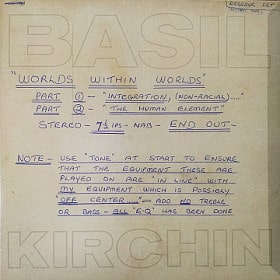 BASIL
"WORLDS WITHIN WORLDS"
PART ① - "INTEGRATION, (NON-RACIAL)...."
PART ② - "THE HUMAN ELEMENT"
STEREO - 7½ IPS - NAB - END OUT -
NOTE - USE "TONE" AT START TO ENSURE
THAT THE EQUIPMENT THESE ARE
PLAYED ON ARE "IN LINE" WITH
MY EQUIPMENT WHICH IS POSSIBLY
"OFF CENTER...." - ADD NO TREBLE
OR BASS - ALL "E-Q" HAS BEEN DONE
KIRCHIN